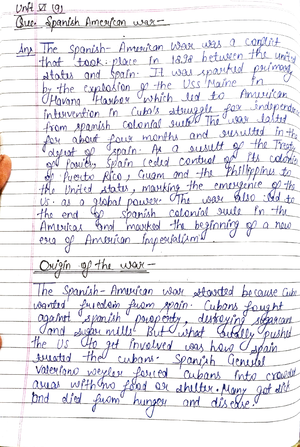 Unit VI (9)
Que: Spanish American war-
Ans The Spanish-American war was a conflict
that took place in 1898 between the united
states and Spain. It was sparked primary
by the explosion of the USS Maine in
Havana Harbor which led to American
intervention in Cuba's struggle for independence
from spanish colonial rule. The war lasted
for about four months and resulted in the
defeat of spain. As a result of the Treaty
of Paris, Spain ceded control of its colonies
of Puerto Rico, Guam and the Philippines to
the United states, marking the emergence of the
U.S. as a global power. The war also led to
the end of spanish colonial rule in the
Americas and marked the beginning of a new
era of American imperialism.
Origin of the war-
The Spanish-American war started because Cuba
wanted freedom from spain. Cubans fought
against spanish property, destroying sugarcane
and sugar mills. But what really pushed
the US to get involved was how spain
treated the cubans. Spanish General
Valeriano weyler forced cubans into crowded
areas with no food or shelter. Many got sick
and died from hunger and disease.